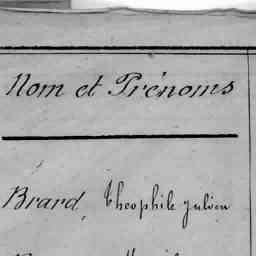 Nom et Prénoms
Brard, Theophile Julien